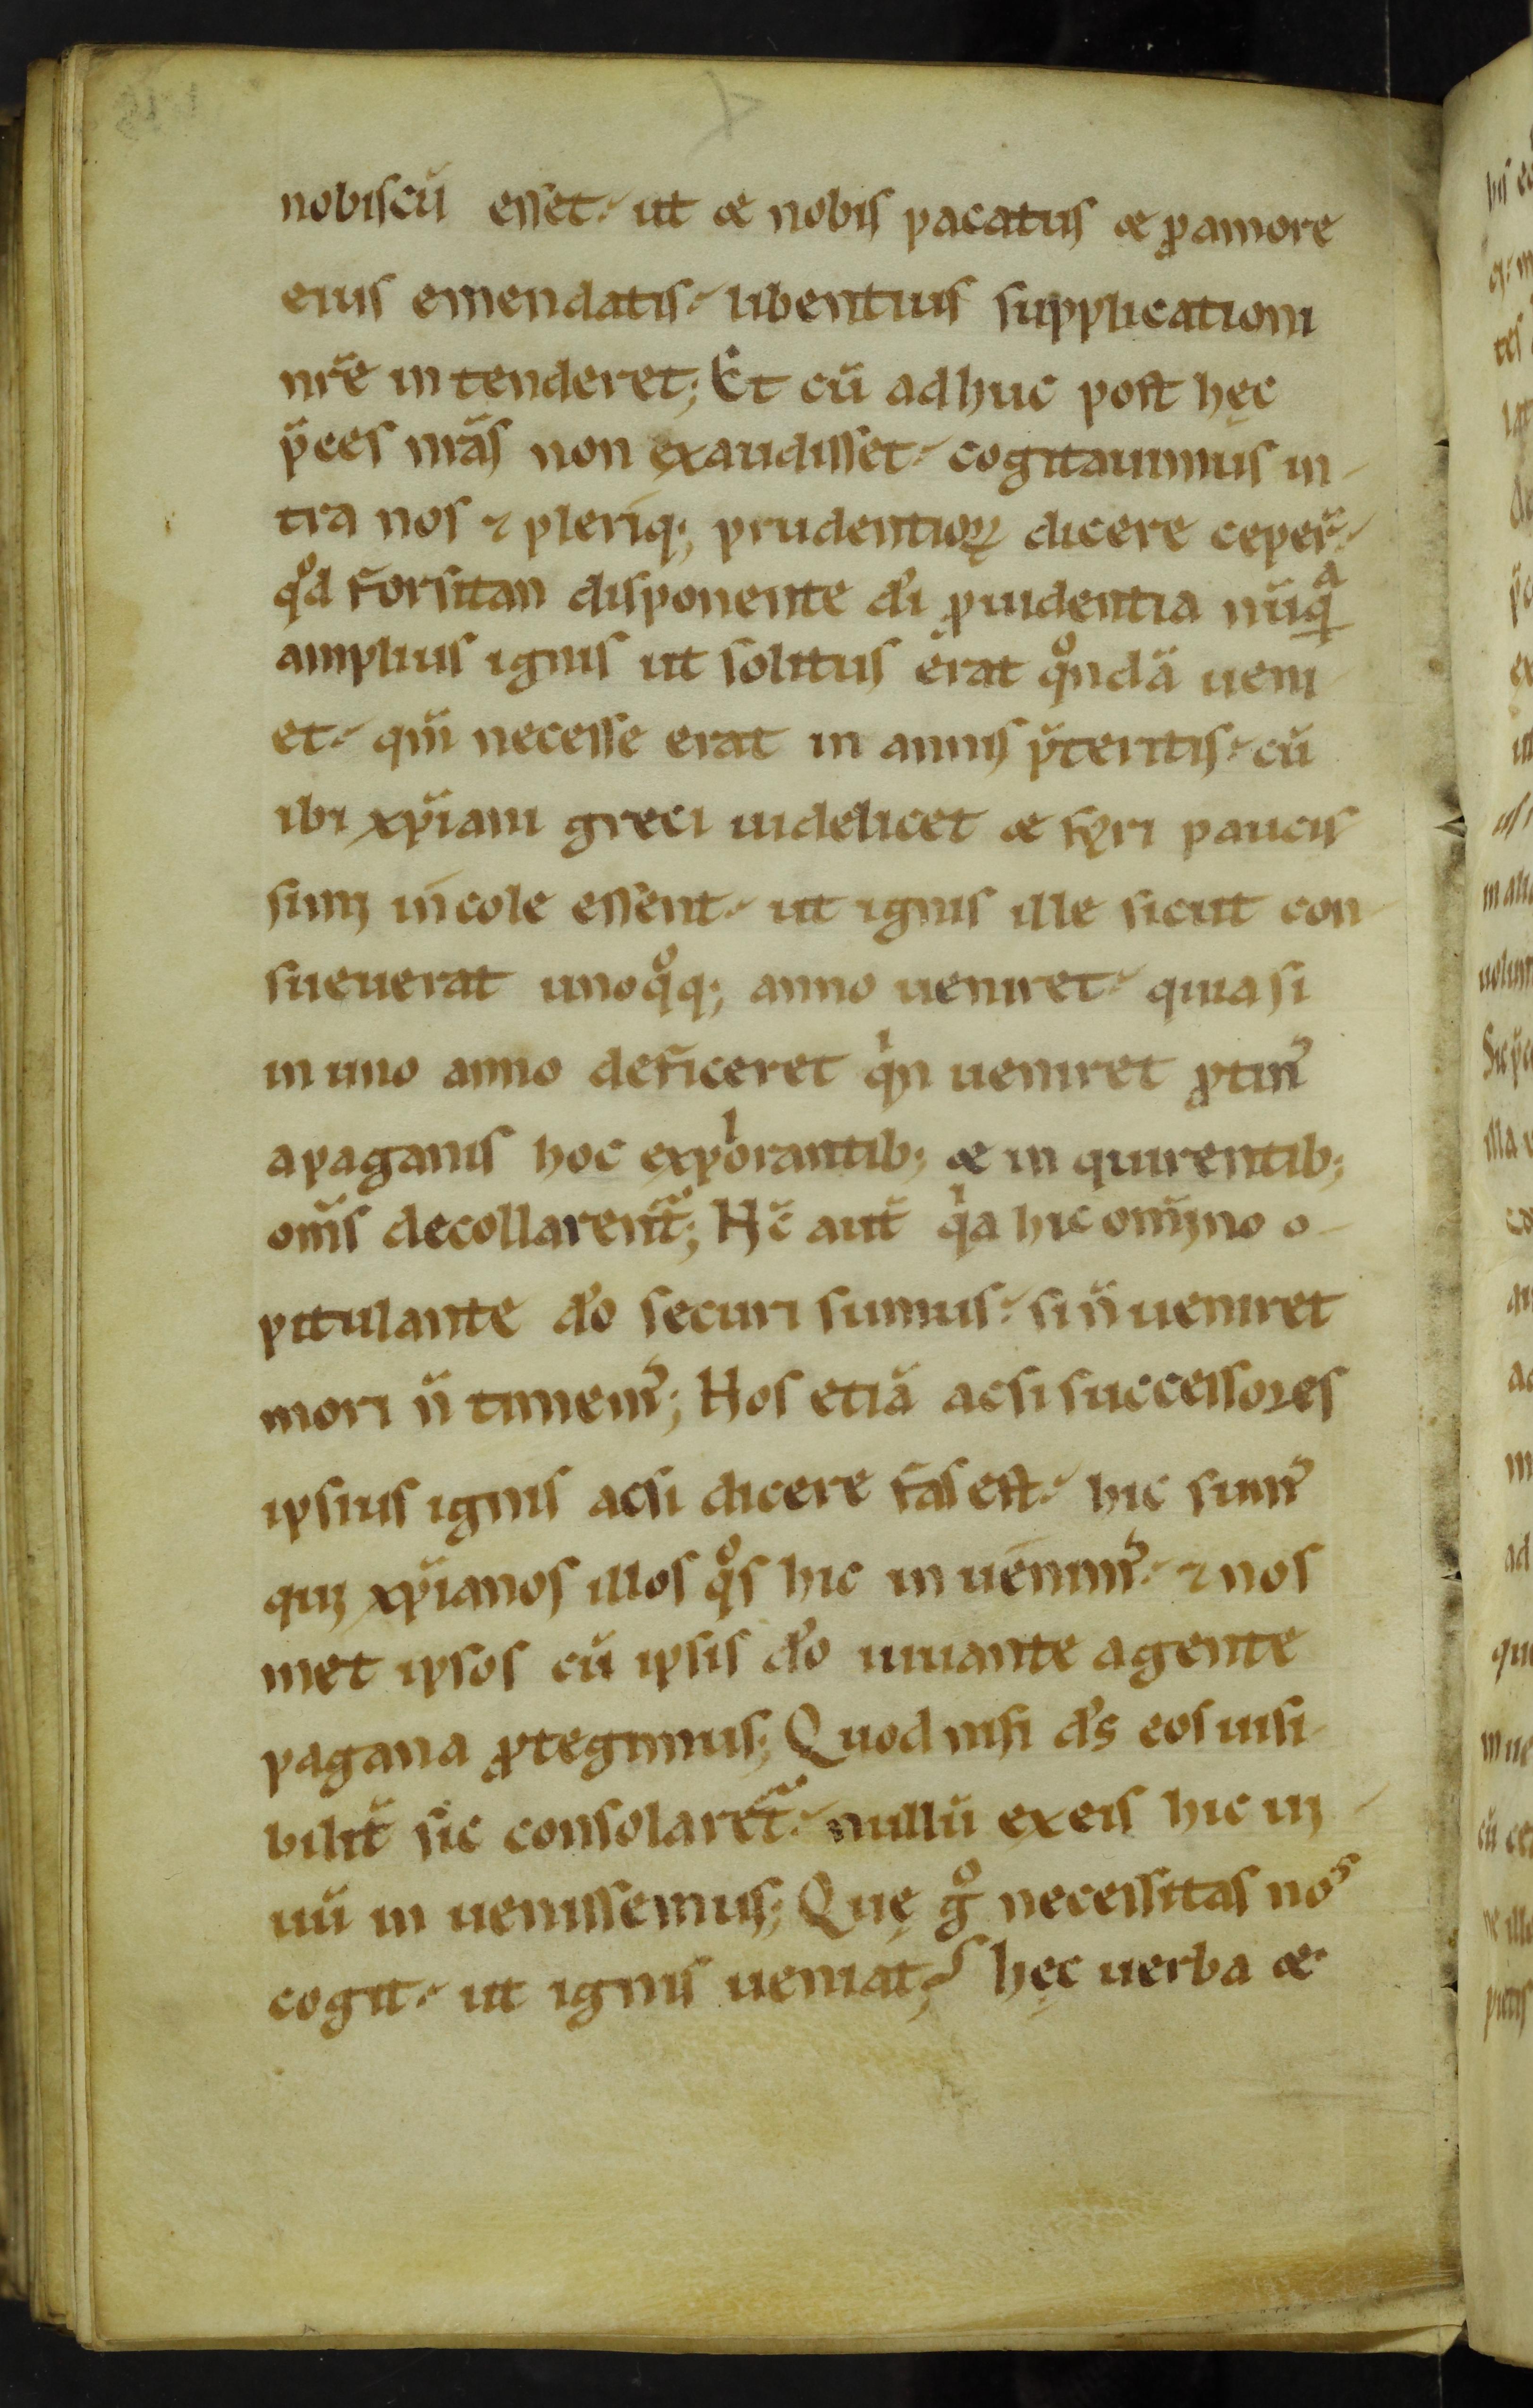 nobiscū esset. ut & nobis pacatus & ꝓamore
eius emendatis. libentius supplicationi
nr̄e intenderet; Et cū adhuc post hęc
p̄ces nr̄as non exaudisset. cogitauimus in-
tra nos ⁊ pleriq; prudentioꝝ dicere ceper̄.
qͦd forsitan disponente dī ꝓuidentia nūqᵃ
amplius ignis ut solitus erat qͦndā ueni-
et. qm̄ necesse erat in annis p̄teritis. cū
ibi xp̄iani greci uidelicet & syri paucis-
simi incole essent. ut ignis ille sicut con-
sueuerat unoqͦq; anno ueniret. quia si
in uno anno deficeret qⁱn ueniret ꝓtin᷒
a paganis hoc explorantib; & inquirentib;
om̄s decollarent̃; Hc̄ aut̄ qⁱa hic om̄ino o-
pitulante dō securi sumus. si n̄ ueniret
mori n̄ timem᷒; Hos etiā acsi successores
ipsius ignis acsi dicere fas est. hic sum᷒
qui xp̄ianos illos qͦs hic inuenim᷒. ⁊ nos
met ipsos cū ipsis dō iuuante a gente
pagana ꝓtegimus; Quod nisi ds̄ eos uisi-
bilit̄ sic consolaret̃. nullū ex eis hic ui-
uū inuenissemus; Quę gͦ necessitas nos
cogit. ut ignis ueniat? hęc uerba &